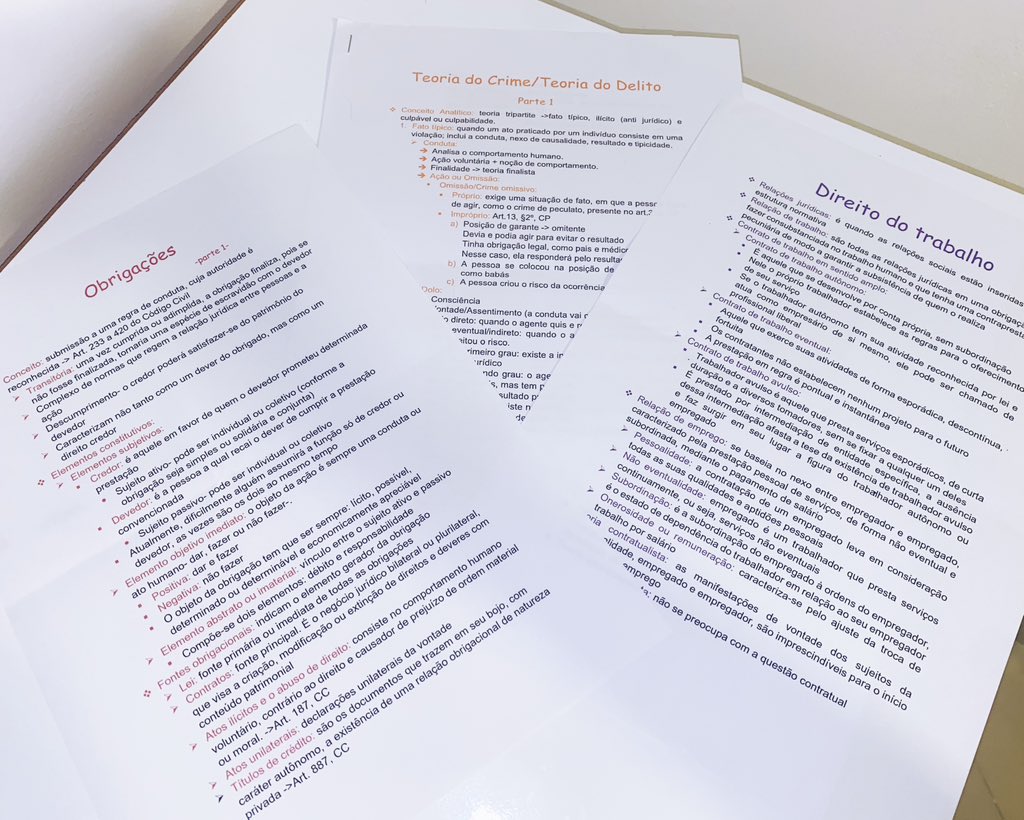 Obrigações
-parte 1-
Conceito: submissão a uma regra de conduta, cuja autoridade é
reconhecida -> Art. 233 a 420 do Código Civil
Transitória: uma vez cumprida ou adimplida, a obrigação finaliza, pois se
não fosse finalizada, tornaria uma espécie de escravidão com o devedor
Complexo de normas que regem a relação jurídica entre pessoas e a
ação
Descumprimento- o credor poderá satisfazer-se do patrimônio do
devedor
Caracterizam não tanto como um dever do obrigado, mas como um
direito credor
Elementos constitutivos:
Elementos subjetivos:
Credor: é aquele em favor de quem o devedor prometeu determinada
prestação
Sujeito ativo- pode ser individual ou coletivo (conforme a
obrigação seja simples ou solidária e conjunta)
Devedor: é a pessoa a qual recai o dever de cumprir a prestação
convencionada
Sujeito passivo- pode ser individual ou coletivo
Atualmente, dificilmente alguém assumirá a função só de credor ou
devedor, as vezes são os dois ao mesmo tempo
Elemento objetivo imediato: o objeto da ação é sempre uma conduta ou
ato humano- dar, fazer ou não fazer-.
Positiva: dar e fazer
Negativa: não fazer
O objeto da obrigação tem que ser sempre: lícito, possível,
determinado ou determinável e economicamente apreciável
Elemento abstrato ou imaterial: vínculo entre o sujeito ativo e passivo
Compõe-se dois elementos: débito e responsabilidade
Fontes obrigacionais: indicam o elemento gerador da obrigação
Lei: fonte primária ou imediata de todas as obrigações
Contratos: fonte principal. É o negócio jurídico bilateral ou plurilateral,
que visa a criação, modificação ou extinção de direitos e deveres com
conteúdo patrimonial
Atos ilícitos e o abuso de direito: consiste no comportamento humano
voluntário, contrário ao direito e causador de prejuízo de ordem material
ou moral. ->Art. 187, CC
Atos unilaterais: declarações unilaterais da vontade
Títulos de crédito: são os documentos que trazem em seu bojo, com
caráter autônomo, a existência de uma relação obrigacional de natureza
privada ->Art. 887, CC
Teoria do Crime/Teoria do Delito
Parte 1
Conceito Analítico: teoria tripartite ->fato típico, ilícito (anti jurídico) e
culpável ou culpabilidade.
1. Fato típico: quando um ato praticado por um indivíduo consiste em uma
violação; inclui a conduta, nexo de causalidade, resultado e tipicidade.
Conduta:
Analisa o comportamento humano.
Ação voluntária + noção de comportamento.
Finalidade -> teoria finalista
Ação ou Omissão:
Omissão/Crime omissivo:
Próprio: exige uma situação de fato, em que a
de agir, como o crime de peculato, presente no art.
Impróprio: Art.13, §2º, CP
a) Posição de garante -> omitente
Devia e podia agir para evitar o resultado
Tinha obrigação legal, como pais e
Nesse caso, ela responderá pelo
b) A pessoa se colocou na posição de
como babás
c) A pessoa criou o risco da ocorrência
Dolo:
Consciência
(a conduta vai
direto: quando o agente quis e
eventual/indireto: quando o
o risco.
grau: existe a
grau: o
mas tem
Direito do trabalho
Relações jurídicas: é quando as relações sociais estão inseridas
estrutura normativa
Relação de trabalho: são todas as relações jurídicas em uma
fazer consubstanciada no trabalho humano e que tenha uma
pecuniária de modo a garantir a subsistência de quem o realiza
Contrato de trabalho em sentido amplo:
Contrato de trabalho autônomo:
É aquele que se desenvolve por conta própria, sem subordinação
Nele o próprio trabalhador estabelece as regras para o oferecimento
de seu serviço
Se o trabalhador autônomo tem sua atividade reconhecida por lei e
atua como empresário de si mesmo, ele pode ser chamado de
profissional liberal
Contrato de trabalho eventual:
Aquele que exerce suas atividades de forma esporádica, descontínua,
fortuita
Os contratantes não estabelecem nenhum projeto para o futuro
A prestação em regra é pontual e instantânea
Contrato de trabalho avulso:
Trabalhador avulso é aquele que presta serviços esporádicos, de curta
duração e a diversos tomadores, sem se fixar a qualquer um deles
É prestado por intermediação de entidade específica, a ausência
dessa intermediação afasta a tese da existência de trabalhador avulso
e faz surgir em seu lugar a figura do trabalhador autônomo ou
empregado
Relação de emprego: se baseia no nexo entre empregador e empregado,
caracterizado pela prestação pessoal de serviços, de forma não eventual e
subordinada, mediante o pagamento de salário
Pessoalidade: a contratação de um empregado leva em consideração
todas as suas qualidades e aptidões pessoais
Não eventualidade: empregado é um trabalhador que presta serviços
continuamente, ou seja, serviços não eventuais
Subordinação: é a subordinação do empregado à ordens do empregador,
é o estado de dependência do trabalhador em relação ao seu empregador
Onerosidade ou remuneração: caracteriza-se pelo ajuste da troca de
trabalho por salário
contratualista: as manifestações de vontade dos sujeitos da
empregado e empregador, são imprescindíveis para o início
emprego
não se preocupa com a questão contratual